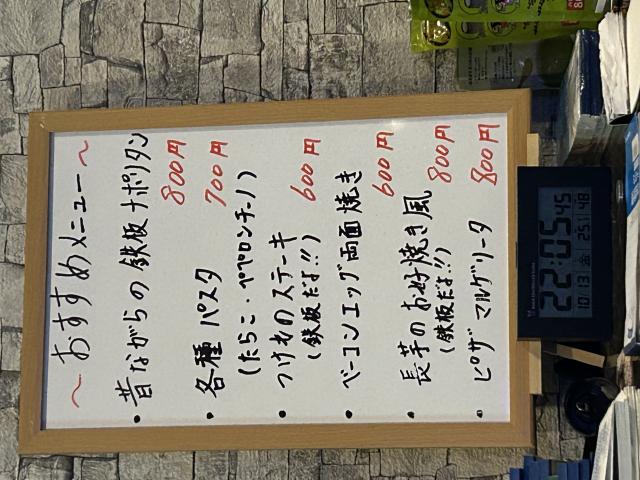 ～おすすめメニュー～
・昔ながらの鉄板ナポリタン
800円
・各種パスタ 700円
(たらこ・ペペロンチーノ)
・つけものステーキ 600円
(鉄板だよ!!)
・ベーコンエッグ両面焼き
600円
・長芋のお好み焼き風
(鉄板だよ!!) 800円
・ピザ マルゲリータ 800円
22:05 45
10/13 金 25 48